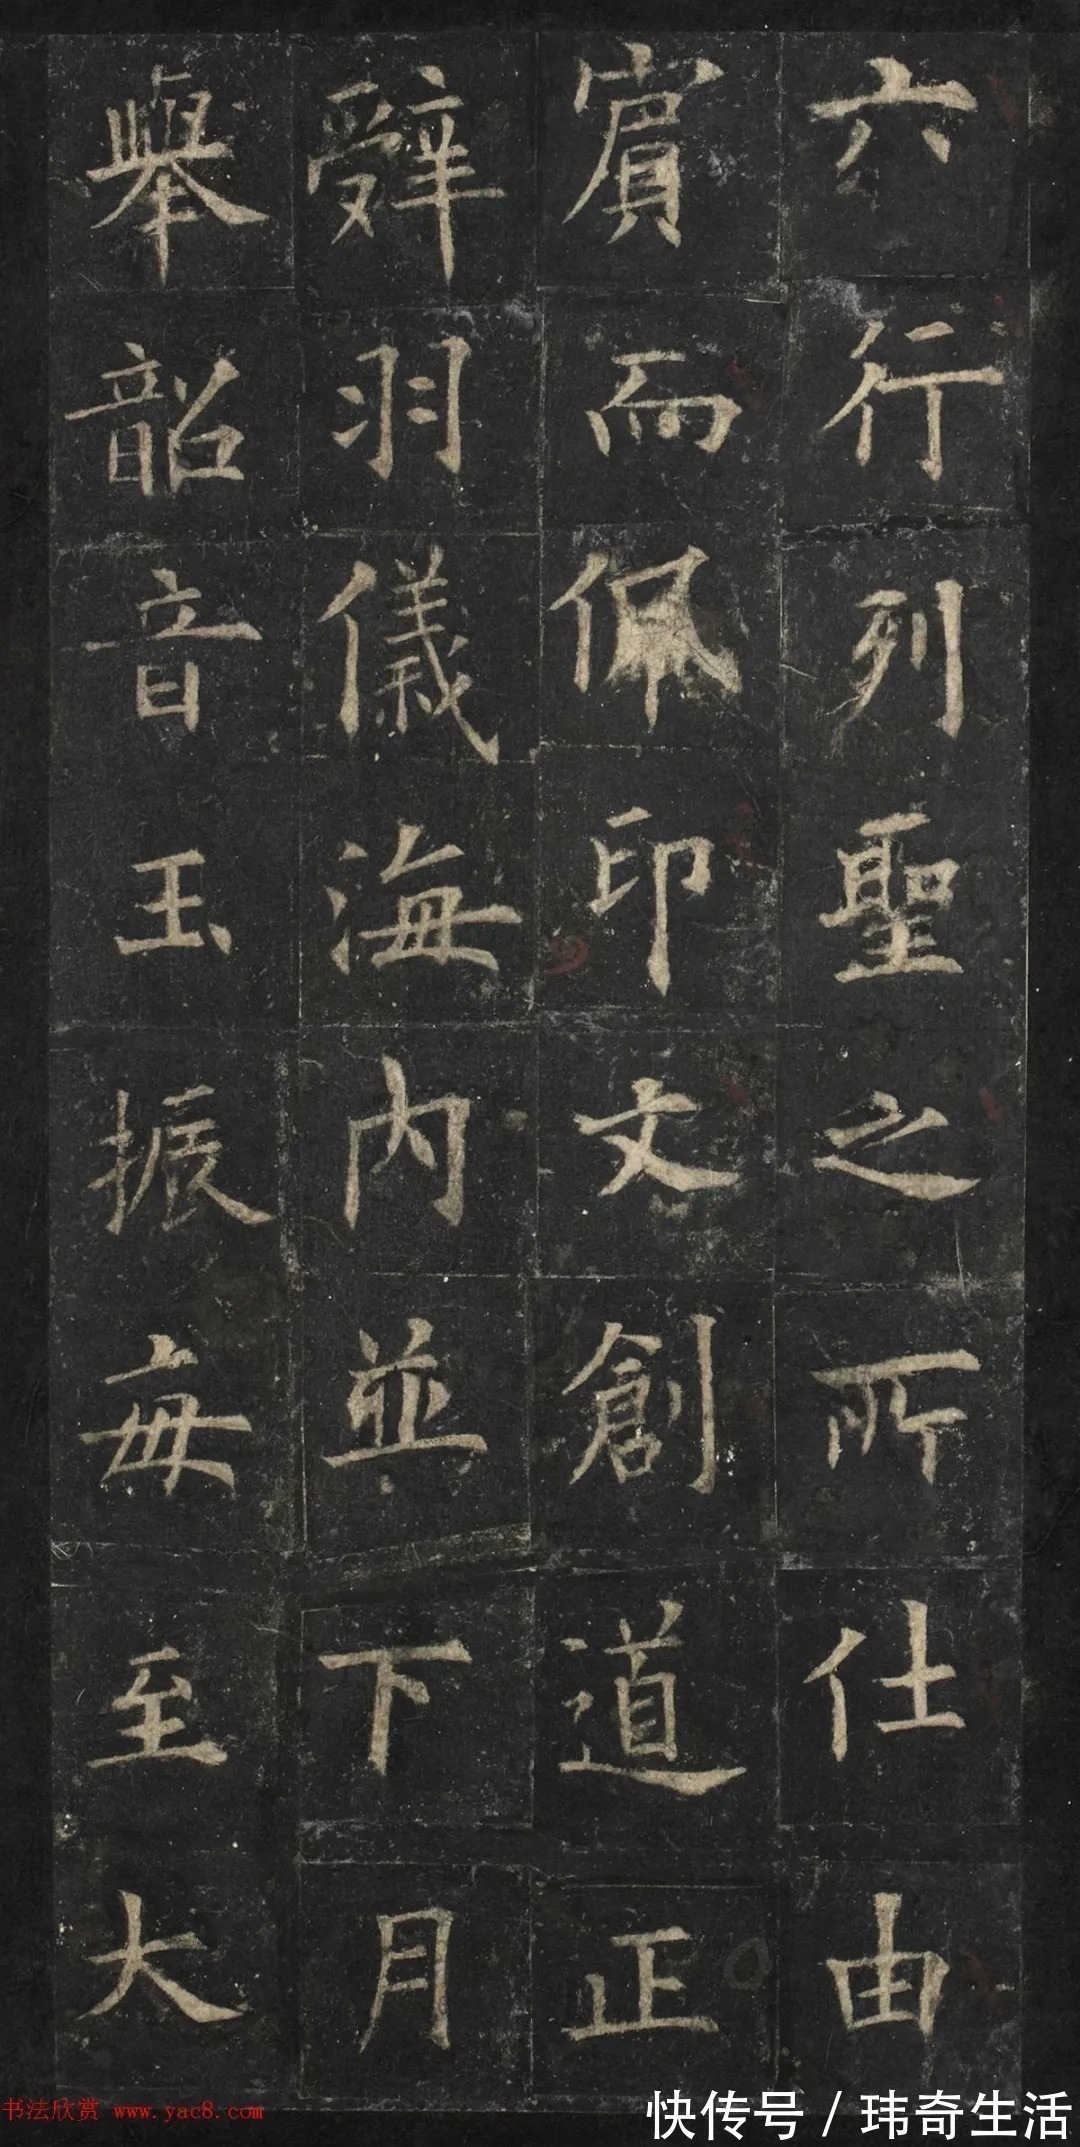 六行列聖之所仕由
賔而佩印文創道正
辤羽儀海內並下月
舉韶音玉振每至大
书法欣赏 www.yac8.com
快传号 / 玮奇生活